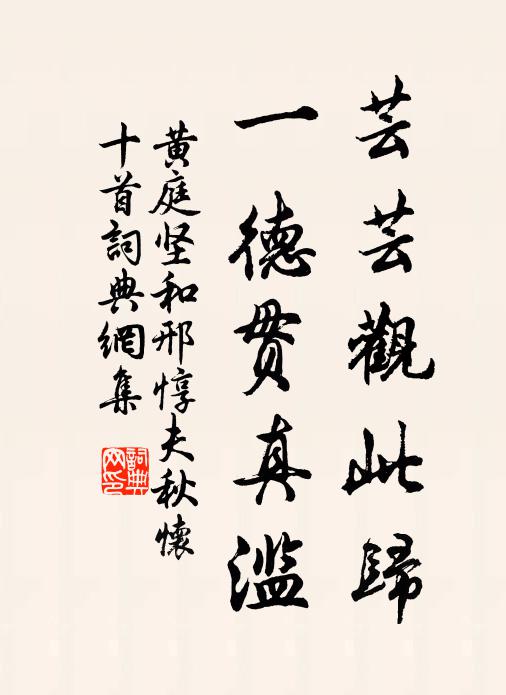 芸芸觀此歸
一德贯真滥
黄庭坚和邢惇夫秋懷
十首詞典網集
詞典网印